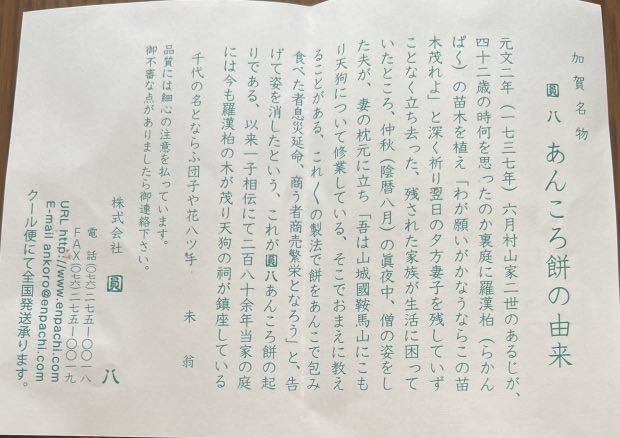 加賀名物
圓八 あんころ餅の由来
元文二年（一七三七年）六月村山家二世のあるじが、
四十二歳の時何を思ったのか裏庭に羅漢柏（らかん
ぱく）の苗木を植え「わが願いがかなうならこの苗
木茂れよ」と深く祈り翌日の夕方妻子を残していず
ことなく立ち去った、残された家族が生活に困って
いたところ、仲秋（陰暦八月）の眞夜中、僧の姿をし
た夫が、妻の枕元に立ち「吾は山城國鞍馬山にこも
り天狗について修業している、そこでおまえに教え
ることがある、これ〱の製法で餅をあんこで包み
食べた者息災延命、商う者商売繁栄となろう」と、告
げて姿を消したという、これが圓八あんころ餅の起
りである、以来一子相伝にて二百八十余年当家の庭
には今も羅漢柏の木が茂り天狗の祠が鎮座している
千代の名とならふ団子や花八ツ手 未翁
品質には細心の注意を払っています。
御不審な点がありましたら御連絡下さい。
株式会社 圓八
電話（〇七六）二七五ー〇〇一八
FAX（〇七六）二七五ー〇〇一九
URL http://www.enpachi.com
E-mail ankoro@enpachi.com
クール便にて全国発送承ります。